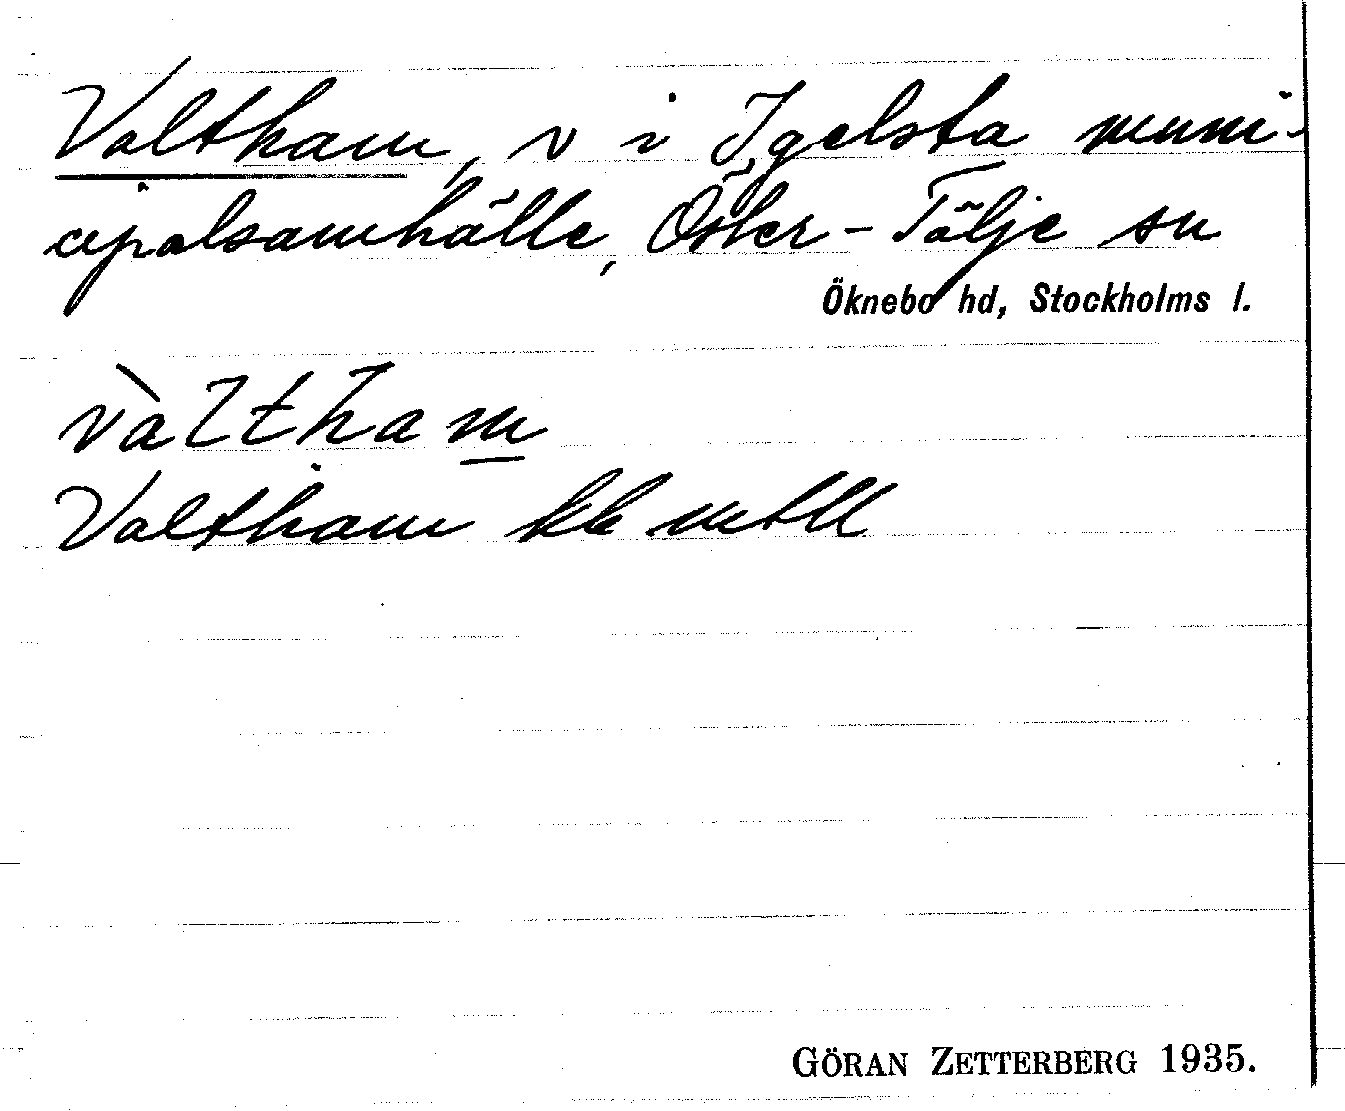 Valtham, v i Igelsta muni-
cipalsamhälle, Öster-Tälje sn
Öknebo hd, Stockholms l.
vàltham
Valtham kb mtll
GÖRAN ZETTERBERG 1935.